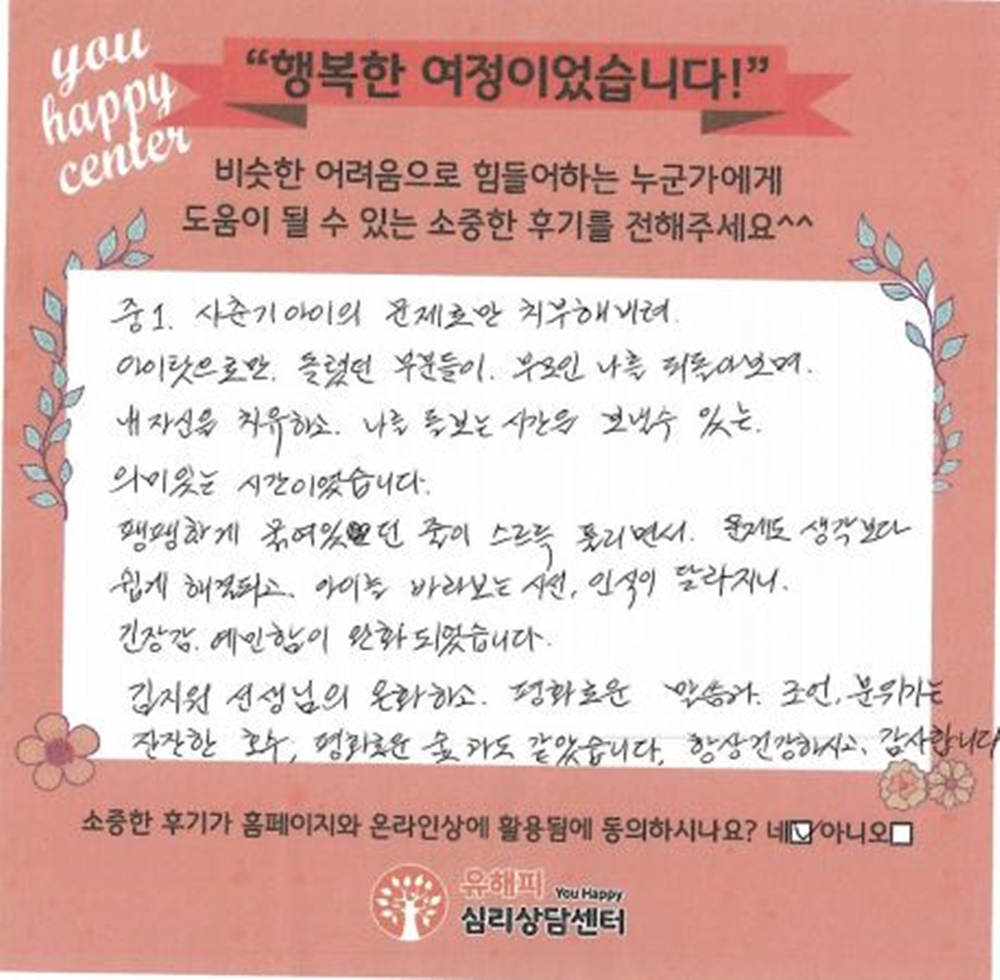 you
happy
center
“행복한 여정이었습니다!”
비슷한 어려움으로 힘들어하는 누군가에게
도움이 될 수 있는 소중한 후기를 전해주세요^^
중1. 사춘기 아이의 문제로만 치부해버려.
아이탓으로만. 돌렸던 부분들이. 부모인 나를 되돌아보며.
내 자신을 치유하고. 나를 돌보는 시간을 보낼수 있는.
의미있는 시간이였습니다.
팽팽하게 묶여있던 줄이 스르륵 풀리면서. 문제도 생각보다
쉽게 해결되고. 아이를 바라보는 시선, 인식이 달라지니.
긴장감. 예민함이 완화되었습니다.
김지원 선생님의 온화하고. 평화로운 말씀과. 조언, 분위기는
잔잔한 호수, 평화로운 숲과도 같았습니다. 항상건강하시고, 감사합니다
소중한 후기가 홈페이지와 온라인상에 활용됨에 동의하시나요? 네☑/아니오☐
유해피 You Happy
심리상담센터